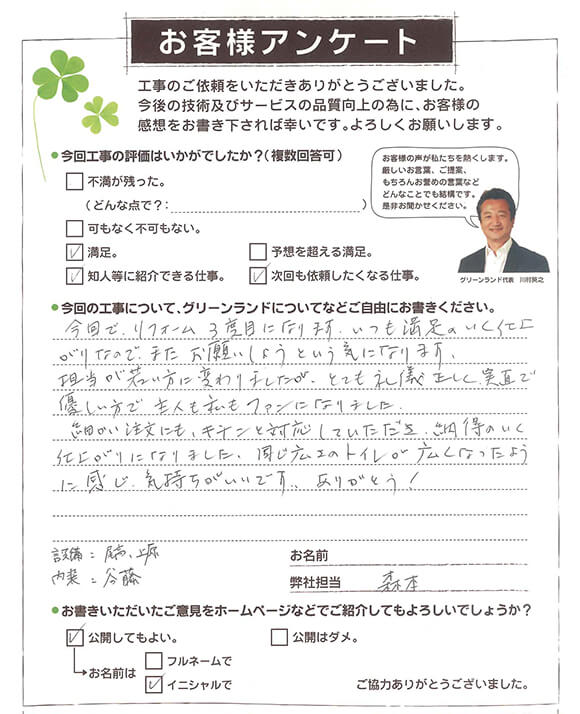 お客様アンケート
工事のご依頼をいただきありがとうございました。
今後の技術及びサービスの品質向上の為に、お客様の
感想をお書き下されば幸いです。よろしくお願いします。
●今回工事の評価はいかがでしたか?(複数回答可)
お客様の声が私たちを熱くします。
厳しいお言葉、ご提案、
もちろんお誉めの言葉など
どんなことでも結構です。
是非お聞かせください。
グリーンランド代表 川村
不満が残った。
(どんな点で?: )
可もなく不可もない。
満足。 予想を超える満足。
知人等に紹介できる仕事。 次回も依頼したくなる仕事。
●今回の工事について、グリーンランドについてなどご自由にお書きください。
今回で、リフォーム 3度目になります。いつも満足のいく仕上
がりなので、また お願いしようという気になります。
担当が若い方に変わりましたが、とても礼儀正しく、実直で
優しい方で主人も私もファンになりました。
細かい注文にも、キチンと対応していただき、納得のいく
仕上がりになりました。同じ広さのトイレが広くなったよう
に感じ、気持ちがいいです。ありがとう!
設備:尾高、上原
内装:谷藤
お名前
弊社担当 森本
●お書きいただいたご意見をホームページなどでご紹介してもよろしいでしょうか?
公開してもよい。 公開はダメ。
お名前は フルネームで
イニシャルで
ご協力ありがとうございました。